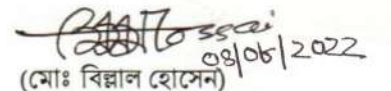 08/06/2022
(মোঃ বিল্লাল হোসেন)